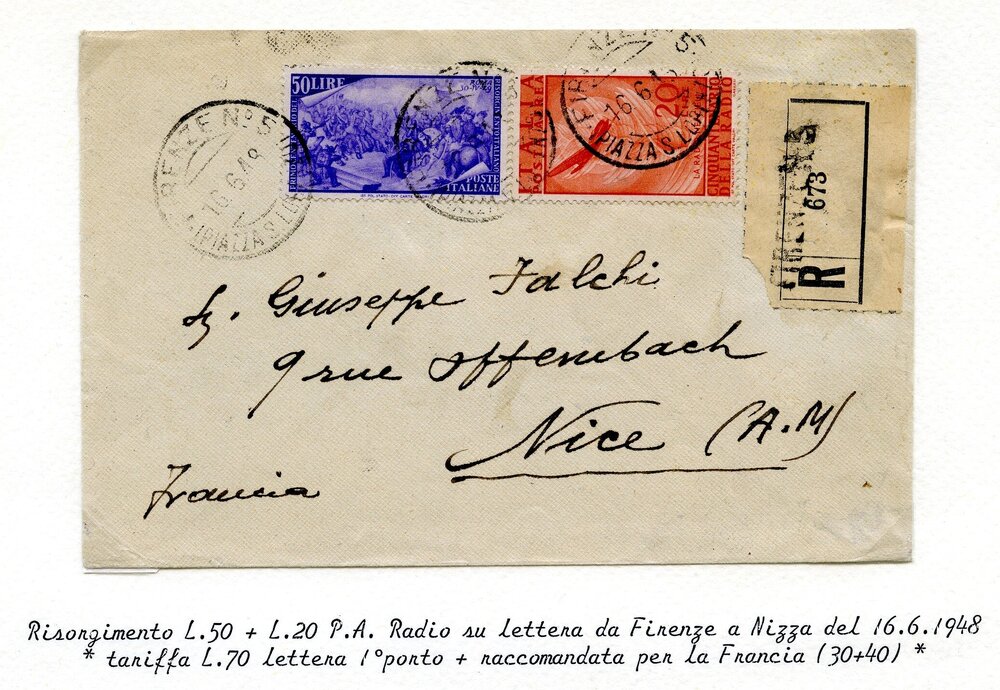 FIRENZE N° 5
-1 6.6.48
(PIAZZA S.L
50 LIRE
RISORGIMENTO ITALIANO
POSTE
ITALIANE
FIRENZE N° 5
16.6.48
(PIAZZA S.L
20
LIRE
POSTA AEREA
CINQUANTENARIO
DELLA RADIO
FIRENZE
673
R
Sg. Giuseppe Falchi
9 rue Offembach
Nice (A.M)
Francia
Risorgimento L.50 + L.20 P.A. Radio su lettera da Firenze a Nizza del 16.6.1948
* tariffa L.70 lettera 1°porto + raccomandata per la Francia (30+40) *